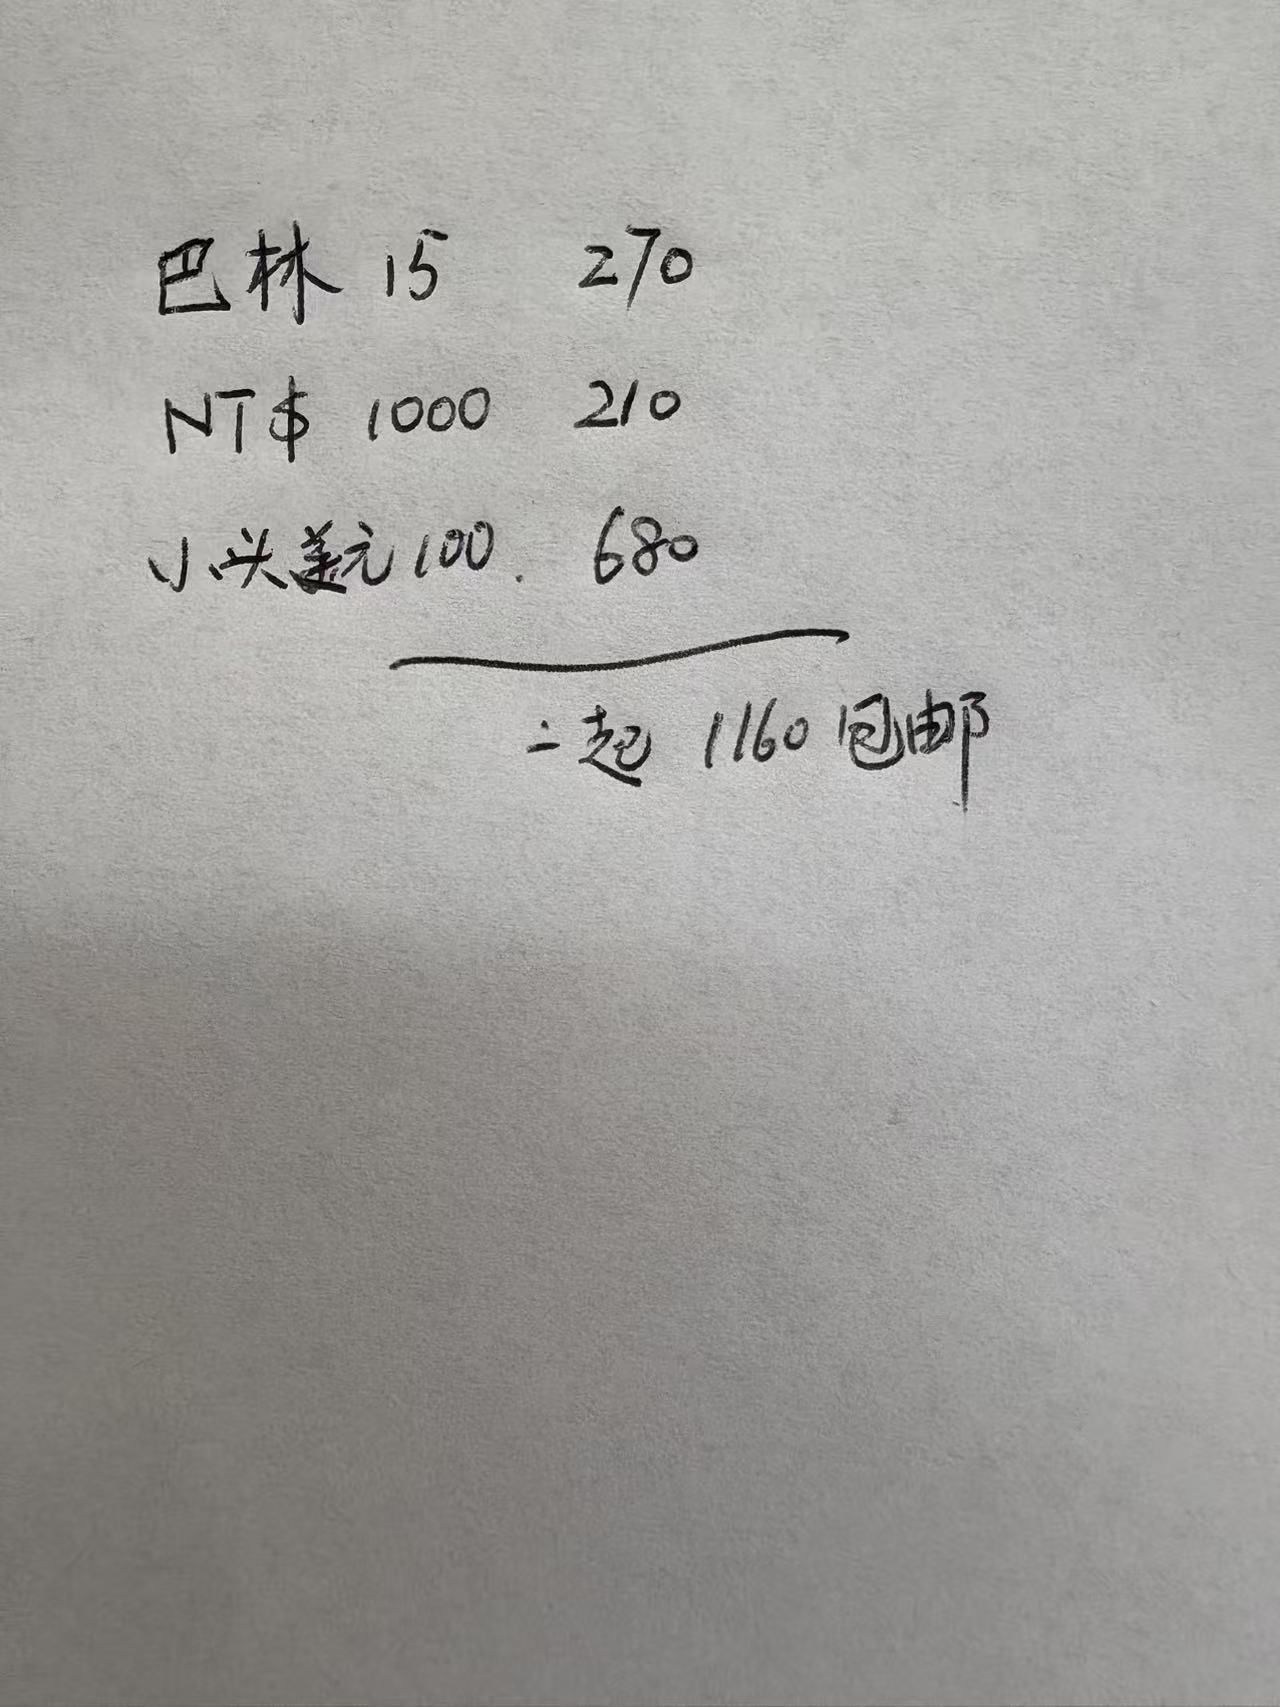 巴林 15 270
NT$ 1000 210
小头美元100. 680
一起 1160包邮